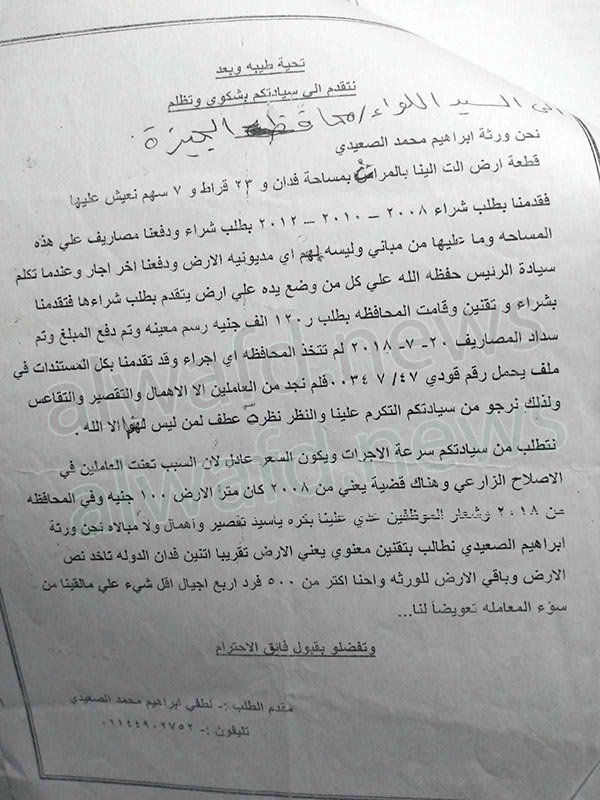 تحية طيبه وبعد
نتقدم الى سيادتكم بشكوى وتظلم
الى السيد اللواء/ محافظ الجيزة
نحن ورثة ابراهيم محمد الصعيدي
قطعة ارض الت الينا بالمراث بمساحة فدان و ٢٣ قراط و ٧ سهم نعيش عليها
فقدمنا بطلب شراء ٢٠٠٨ – ٢٠١٠ – ٢٠١٢ بطلب شراء ودفعنا مصاريف علي هذه
المساحه وما عليها من مباني وليسه لهم اي مديونيه الارض ودفعنا اخر اجار وعندما تكلم
سيادة الرئيس حفظه الله علي كل من وضع يده علي ارض يتقدم بطلب شراءها فتقدمنا
بشراء و تقنين وقامت المحافظه بطلب ١٢٠ر الف جنيه رسم معينه وتم دفع المبلغ وتم
سداد المصاريف ٢٠- ٧- ٢٠١٨ لم تتخذ المحافظه أي اجراء وقد تقدمنا بكل المستندات في
ملف يحمل رقم قودي ٤٧/ ٠٠٣٤٧ فلم نجد من العاملين الا الاهمال والتقصير والتقاعس
ولذلك نرجو من سيادتكم التكرم علينا والنظر نظرت عطف لمن ليس لهم الا الله .
نتطلب من سيادتكم سرعة الاجرات ويكون السعر عادل لان السبب تعنت العاملين في
الاصلاح الزارعي و هناك قضية يعني من ٢٠٠٨ كان متر الارض ١٠٠ جنيه وفي المحافظه
من ٢٠١٨ وشعار الموظفين عدي علينا بكره ياسيد تقصير وأهمال ولا مبالاه نحن ورثة
ابراهيم الصعيدي نطالب بتقنين معنوي يعني الارض تقريبا اتنين فدان الدوله تاخد نص
الارض وباقي الارض للورثه واحنا اكتر من ٥٠٠ فرد اربع اجيال اقل شيء علي مالقينا من
سوء المعامله تعويضا لنا...
وتفضلو بقبول فائق الاحترام
مقدم الطلب :- لطفي ابراهيم محمد الصعيدي
تليفون :- ٠١١٤٤٩٠٢٧٥٢
alwafd.news
alwafd.news